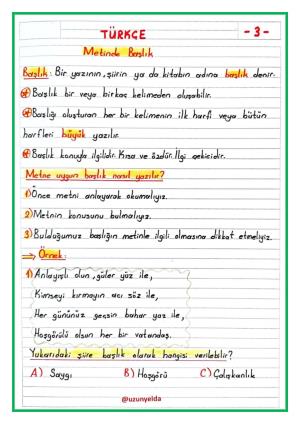 TÜRKÇE
- 3 -
Metinde Başlık
Başlık: Bir yazının, şiirin ya da kitabın adına başlık denir.
* Başlık bir veya birkaç kelimeden oluşabilir.
* Başlığı oluşturan her bir kelimenin ilk harfi veya bütün
harfleri büyük yazılır.
* Başlık konuyla ilgilidir. Kısa ve özdür. İlgi çekicidir.
Metne uygun başlık nasıl yazılır?
1) Önce metni anlayarak okumalıyız.
2) Metnin konusunu bulmalıyız.
3) Bulduğumuz başlığın metinle ilgili olmasına dikkat etmeliyiz.
→ Örnek:
1) Anlayışlı olun, güler yüz ile,
Kimseyi kırmayın acı söz ile,
Her gününüz geçsin bahar yaz ile,
Hoşgörülü olsun her bir vatandaş.
Yukarıdaki şiire başlık olarak hangisi verilebilir?
A) Saygı B) Hoşgörü C) Çalışkanlık
@uzunyelda